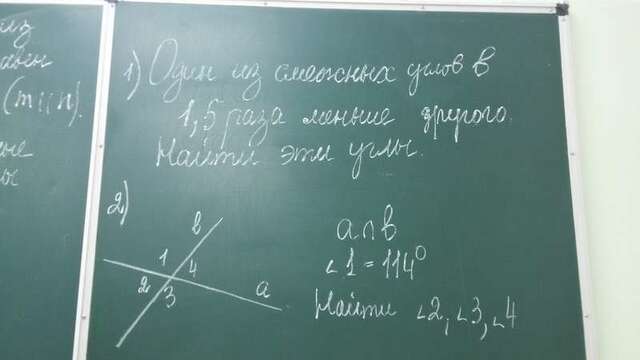 из
(m || n).
1) Один из смежных углов в
1,5 раза меньше другого.
Найти эти углы.
2)
в
1
4
2
3
a
a ∩ в
∠1 = 114°
Найти ∠2, ∠3, ∠4